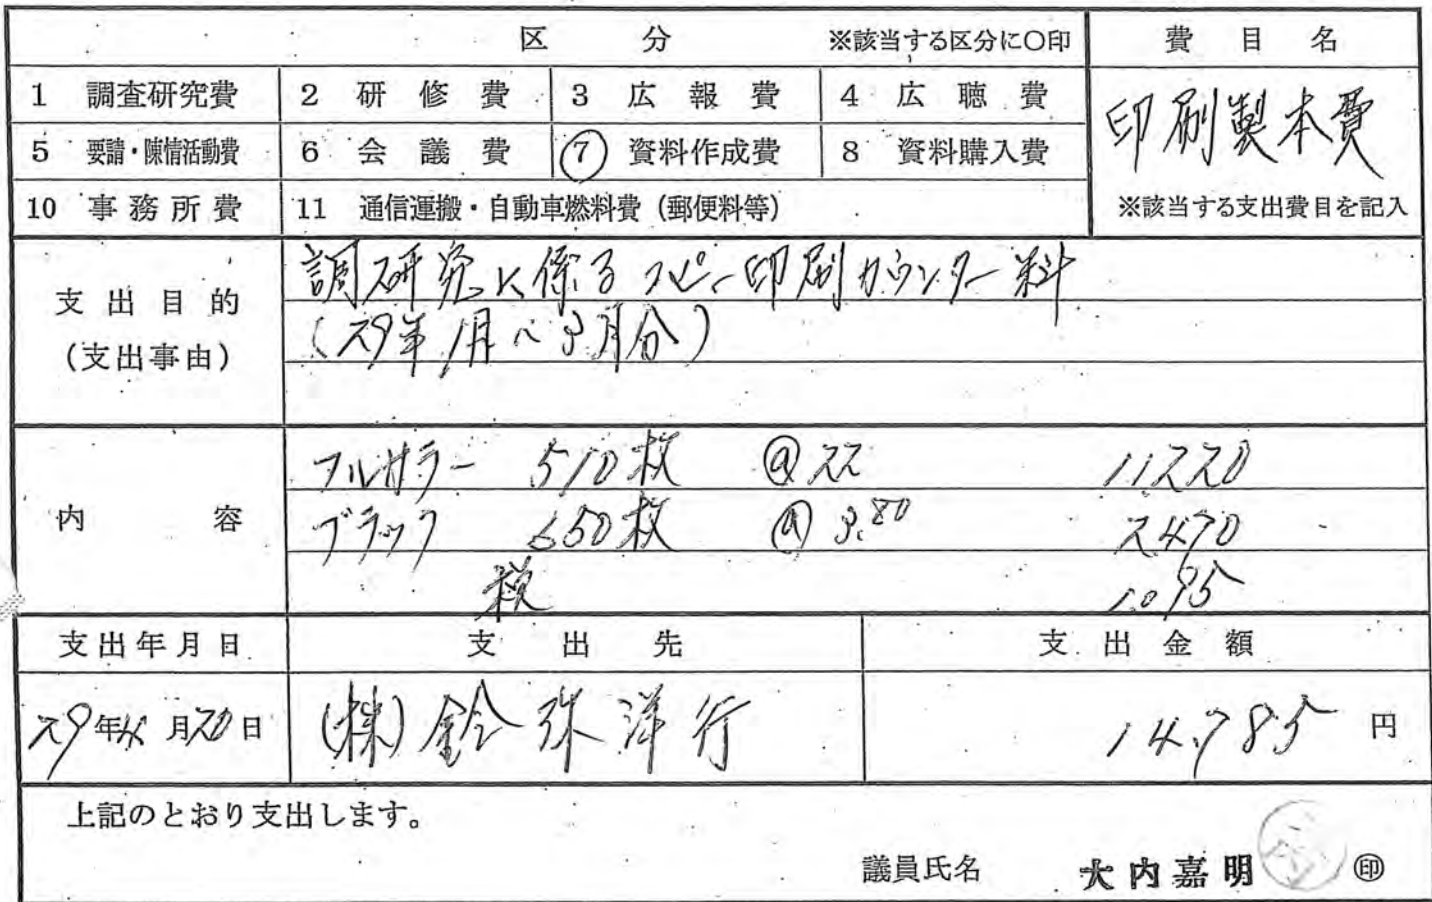 区 分 ※該当する区分に○印 費 目 名
1 調査研究費 2 研 修 費 3 広 報 費 4 広 聴 費
印刷製本費
5 要請・陳情活動費 6 会 議 費 ⑦ 資料作成費 8 資料購入費
10 事務所費 11 通信運搬・自動車燃料費（郵便料等）
※該当する支出費目を記入
支 出 目 的
（支出事由）
調研究に係るコピー印刷カウンター料
（29年1月〜3月分）
内 容
フルカラー 510枚 @22 11220
ブラック 650枚 @3.80 2470
税 1.095
支出年月日 支 出 先 支 出 金 額
29年4月20日 (株)鈴弥洋行 14.785 円
上記のとおり支出します。
議員氏名 大内嘉明 ㊞